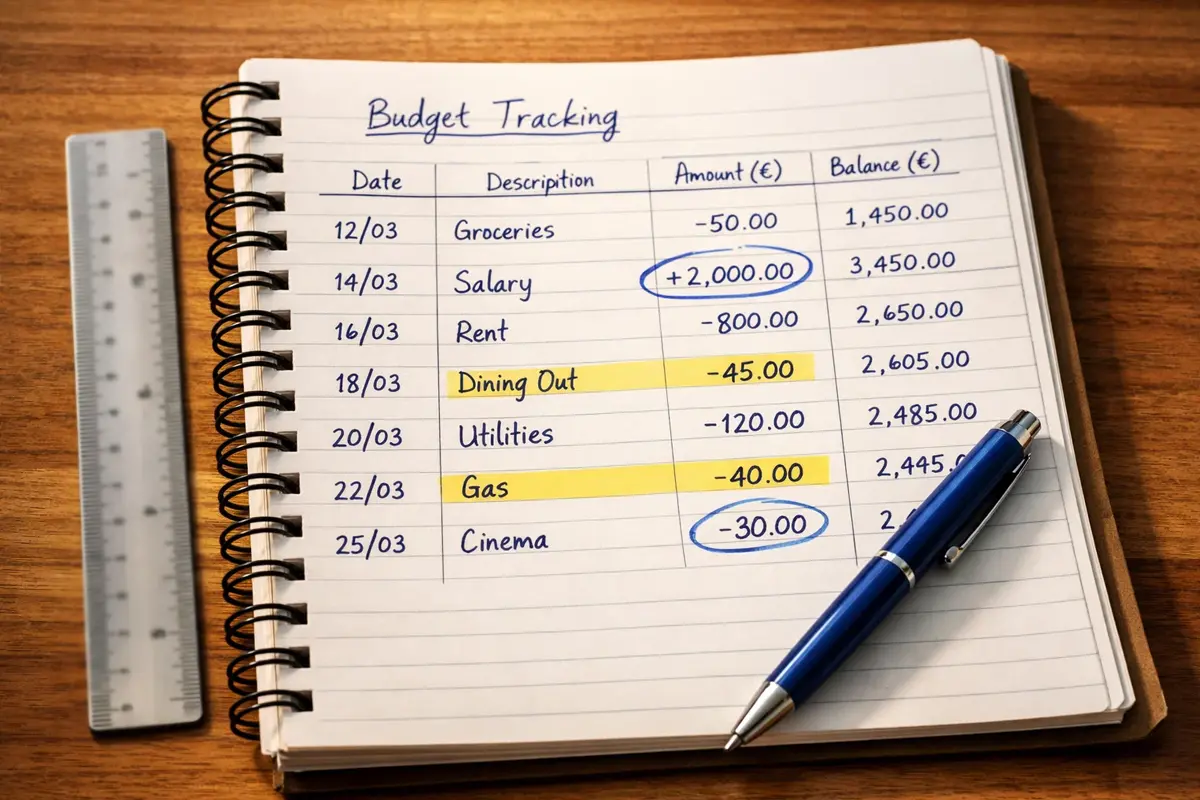 Budget Tracking
Date Descripition Amount (€) Balance (€)
12/03 Groceries -50.00 1,450.00
14/03 Salary +2,000.00 3,450.00
16/03 Rent -800.00 2,650.00
18/03 Dining Out -45.00 2,605.00
20/03 Utilities -120.00 2,485.00
22/03 Gas -40.00
25/03 Cinema -30.00